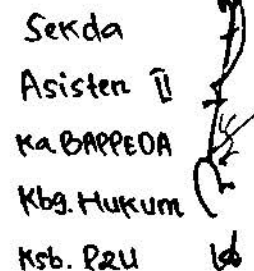 Sekda
Asisten II
Ka BAPPEDA
Kbg. Hukum
Ksb. P2U